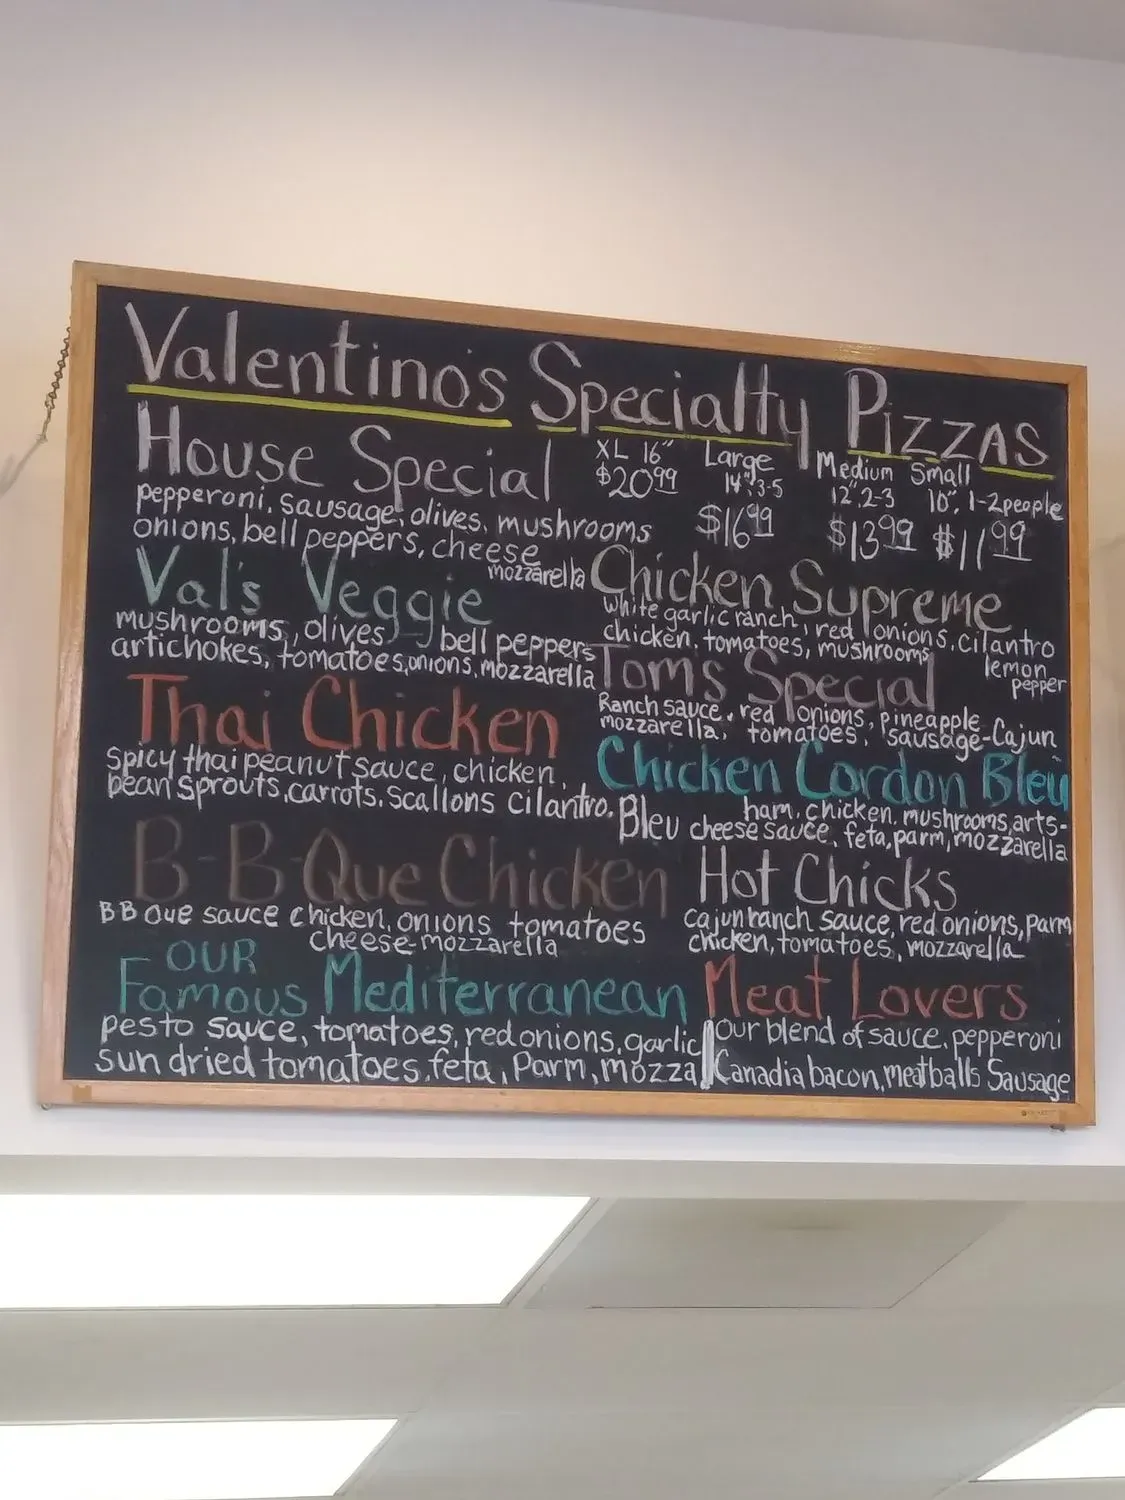 Valentino's Specialty Pizzas
House Special
pepperoni, sausage, olives, mushrooms
onions, bell peppers, cheese
mozzarella
XL 16"
$20.99
Large
14", 3-5
$16.99
Medium
12", 2-3
$13.99
Small
10", 1-2 people
$11.99
Val's Veggie
mushrooms, olives, bell peppers
artichokes, tomatoes, onions, mozzarella
Thai Chicken
spicy thai peanut sauce, chicken
bean sprouts, carrots, scallons cilantro.
B-B-Que Chicken
BBQue sauce chicken, onions tomatoes
cheese-mozzarella
OUR
Famous Mediterranean
pesto sauce, tomatoes, red onions, garlic
sun dried tomatoes, feta, Parm, mozza
Chicken Supreme
white garlic ranch, red onions, cilantro
chicken, tomatoes, mushrooms
lemon
pepper
Toms Special
Ranch sauce, red onions, pineapple
mozzarella, tomatoes, sausage-Cajun
Chicken Cordon Bleu
ham, chicken, mushrooms, arts-
Bleu cheese sauce, feta, parm, mozzarella
Hot Chicks
cajun ranch sauce, red onions, parm
chicken, tomatoes, mozzarella
Meat Lovers
our blend of sauce, pepperoni
Canadia bacon, meatballs Sausage